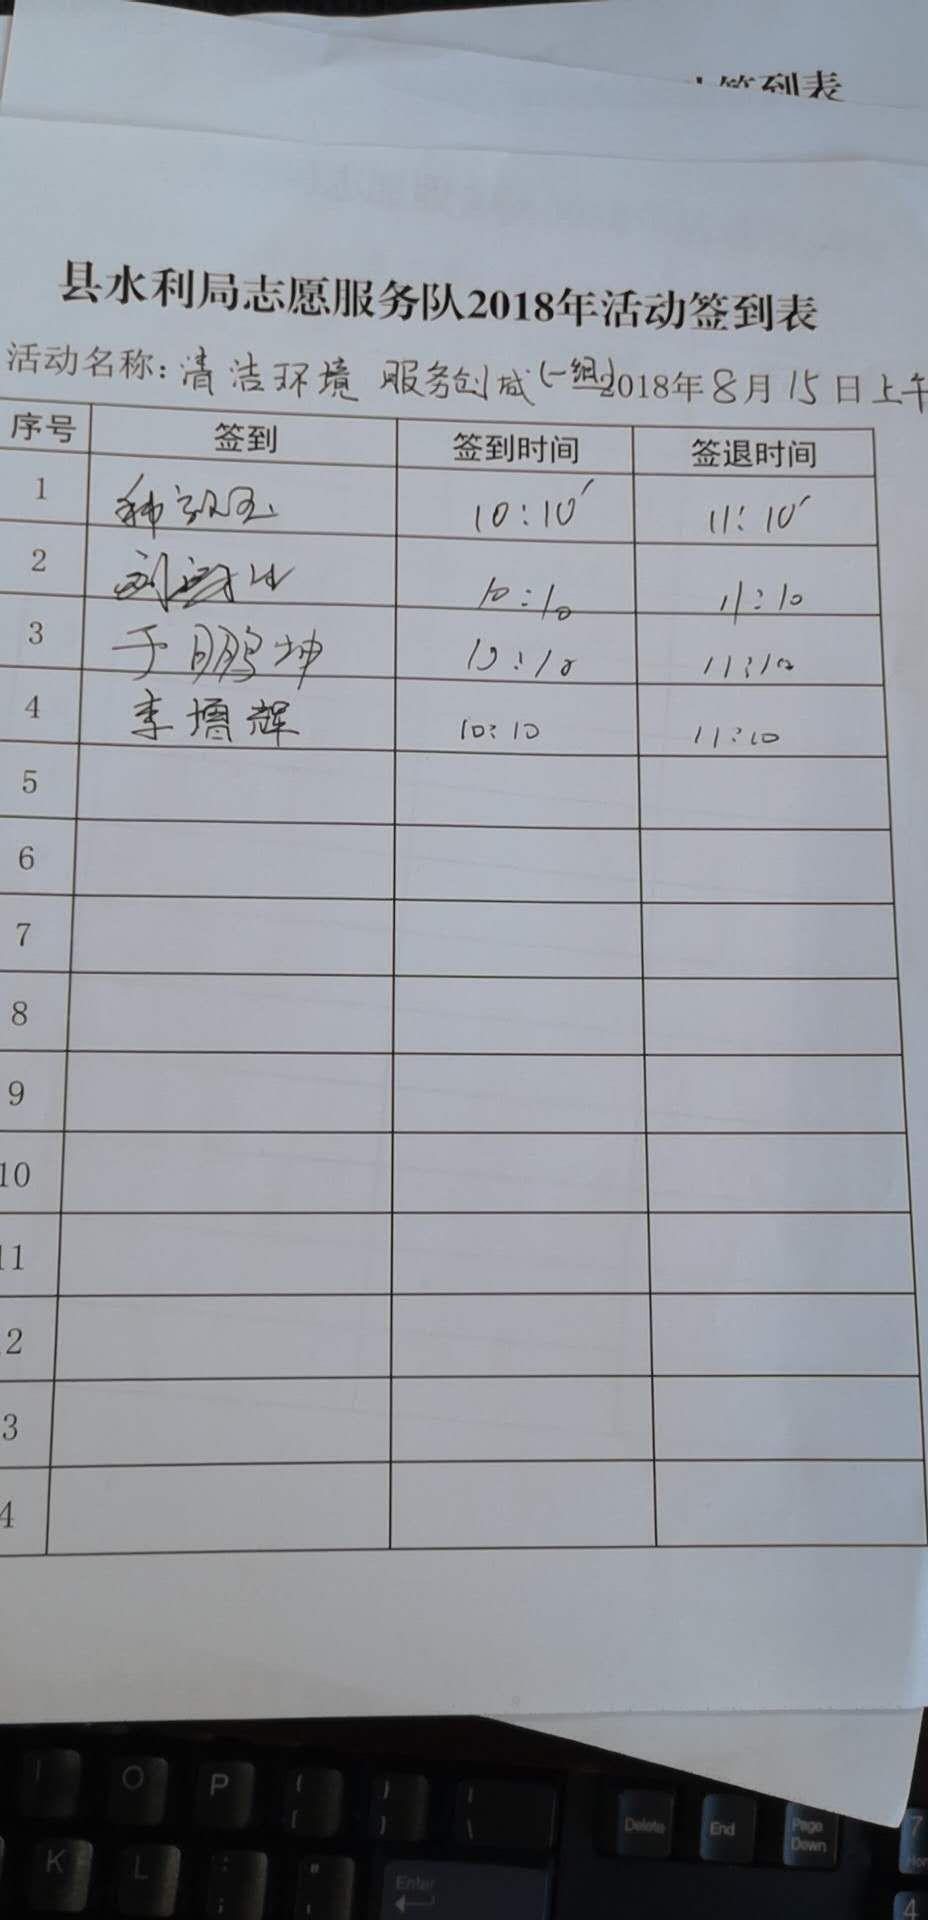 签到表
县水利局志愿服务队2018年活动签到表
活动名称：清洁环境 服务创城(一组)2018年8月15日上午
序号 签到 签到时间 签退时间
1 10:10′ 11:10′
2 10:10 11:10
3 于鹏坤 10:10 11:10
4 李增辉 10:10 11:10
5
6
7
8
9
10
11
2
3
4
O P { [ } ] | \ Delete End Page Down 7
K L : ; " ' Enter 4